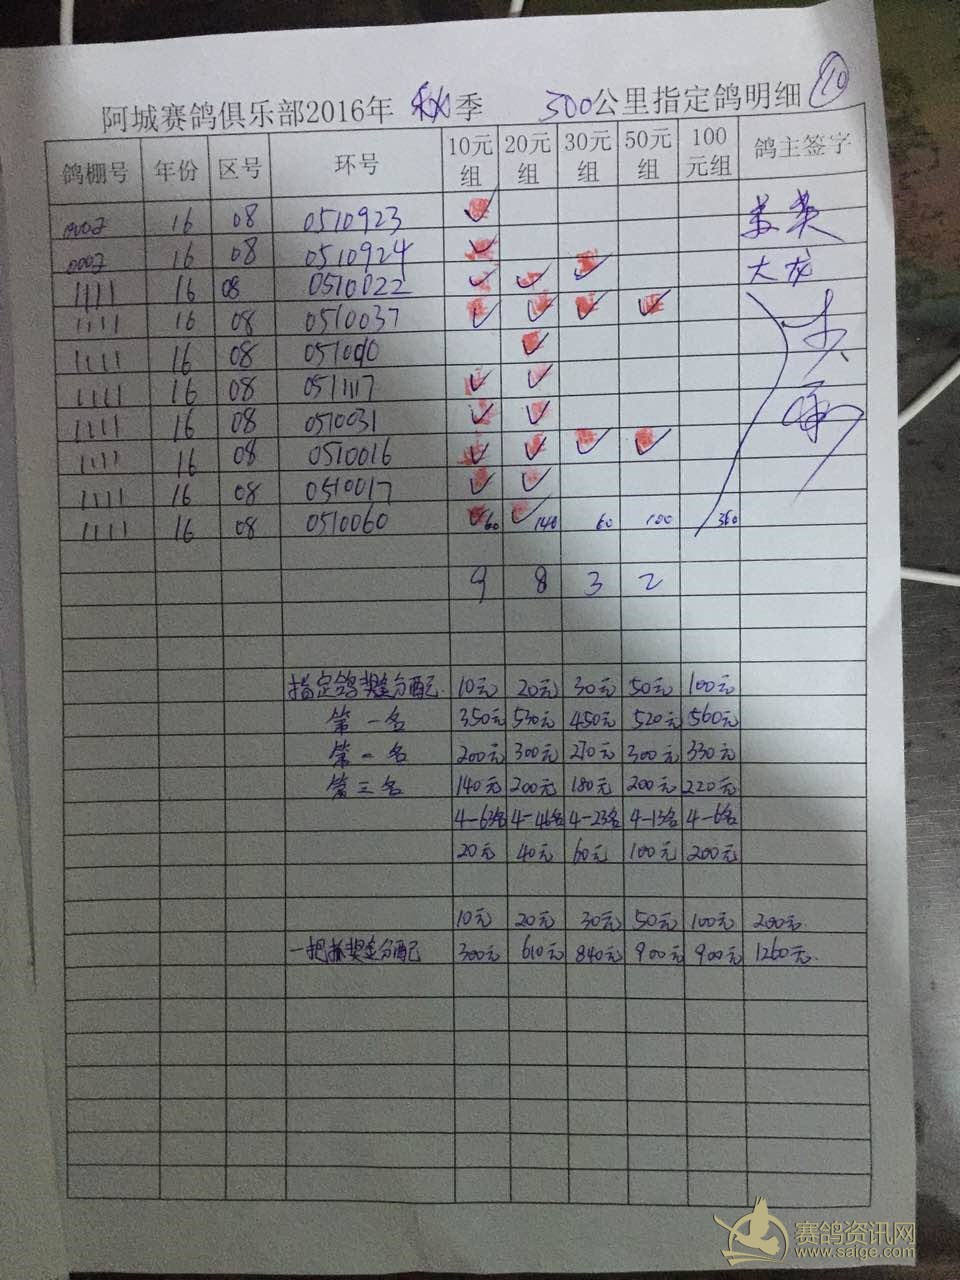 阿城赛鸽俱乐部2016年 秋季 300公里指定鸽明细 10
鸽棚号 年份 区号 环号 10元组 20元组 30元组 50元组 100元组 鸽主签字
0002 16 08 0510923 ✓
0002 16 08 0510924 ✓
1111 16 08 0510022 ✓ ✓ ✓ 大龙
1111 16 08 0510037 ✓ ✓ ✓ ✓
1111 16 08 ✓
1111 16 08 051117 ✓ ✓
1111 16 08 0510031 ✓ ✓
1111 16 08 0510016 ✓ ✓ ✓ ✓
1111 16 08 0510017 ✓ ✓
1111 16 08 0510060 ✓ 60 ✓ 140 60 100 360
9 8 3 2
指定鸽奖金分配 10元 20元 30元 50元 100元
第一名 350元 530元 450元 520元 560元
第一名 200元 300元 270元 300元 330元
第三名 140元 200元 180元 200元 220元
4-63名 4-46名 4-23名 4-13名 4-6名
20元 40元 60元 100元 200元
10元 20元 30元 50元 100元 200元
一把抓奖金分配 300元 610元 840元 900元 900元 1260元
赛鸽资讯网
www.saige.com